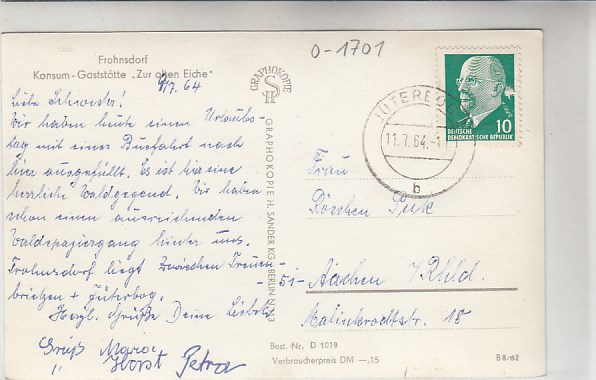 O-1701
Frohnsdorf
Konsum-Gaststätte „Zur alten Eiche"
7.64
Liebe Schwester!
Wir haben heute einen Urlaubs-
tag mit einer Busfahrt nach
hier ausgefüllt. Es ist hier eine
herrliche Waldgegend. Wir haben
schon einen ausreichenden
Waldspaziergang hinter uns.
Frohnsdorf liegt zwischen Treuen-
brietzen + Jüterbog.
Herzl. Grüße Deine Liesbeth
Gruß Maria
" Horst Petra
GRAPHOKOPIE
GRAPHOKOPIE H. SANDER KG. BERLIN N 113
DEUTSCHE
DEMOKRATISCHE REPUBLIK
10
JÜTERBOG
11.7.64.-1
b
Frau
Röschen
-51- Aachen / Rhld.
Malmkrodtstr. 18
Best.-Nr. D 1019
Verbraucherpreis DM —,15
B 8/62